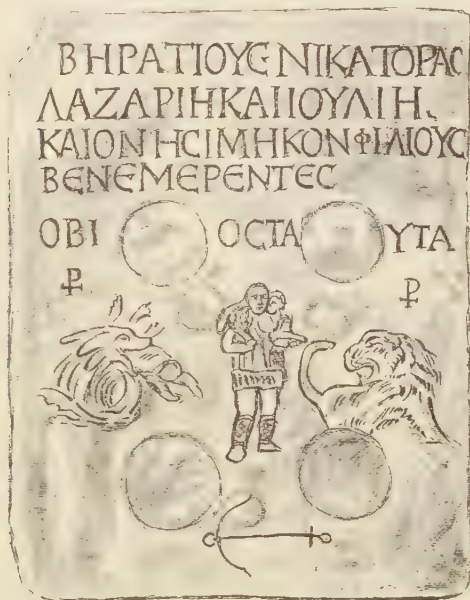 ΒΗΡΑΤΙΟΥЄ ΝΙΚΑΤΟΡΑϹ
ΛΑΖΑΡΙΗ ΚΑΙ ΙΟΥΛΙΗ
ΚΑΙ ΟΝΗϹΙΜΗ ΚΟΝ ΦΙΛΙΟΥϹ
ΒΕΝΕΜΕΡΕΝΤΕϹ
ΟΒΙ ΟϹΤΑ ΥΤΑ
⳨ ⳨